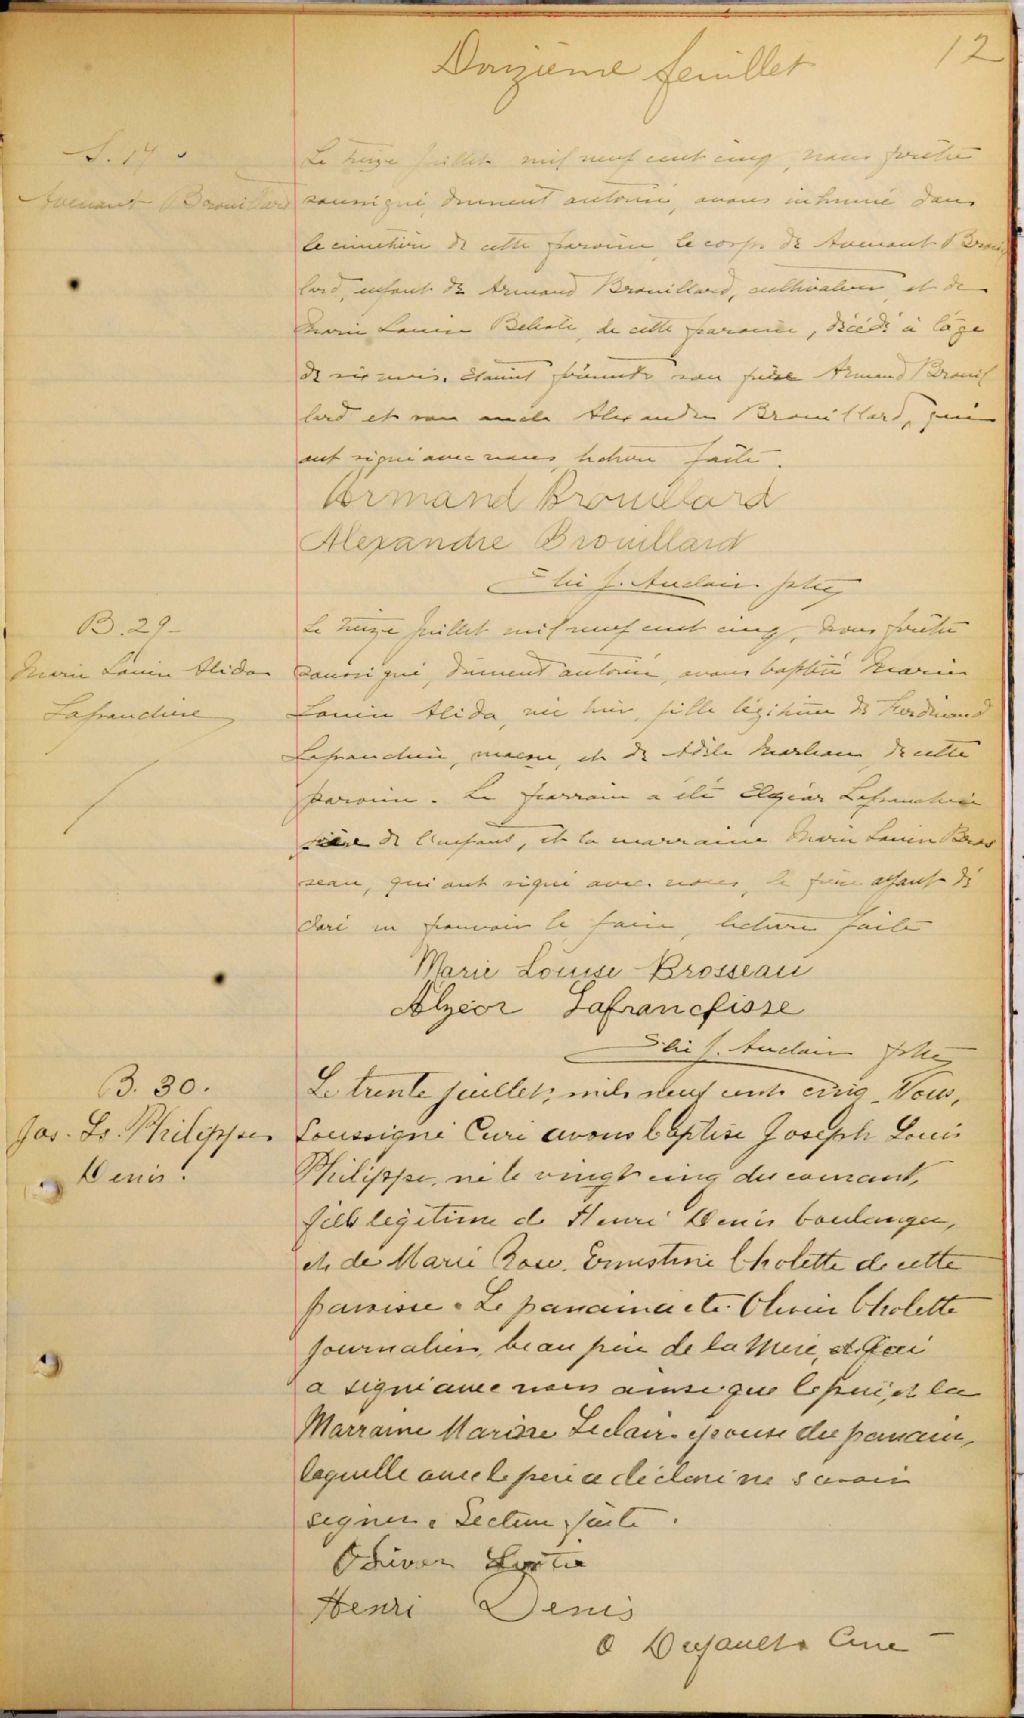 12
Douzième feuillet
S. 14
Avenant Brouillard
Le treize juillet mil neuf cent cinq, nous prêtre
soussigné, dûment autorisé, avons inhumé dans
le cimetière de cette paroisse, le corps de Avenant Brouil
lard, enfant de Armand Brouillard, cultivateur, et de
Marie Louise de cette paroisse, décédé à l'âge
de six mois. Etaient présents son père Armand Brouil
lard et son oncle Alexandre Brouillard, qui
ont signé avec nous, lecture faite.
Armand Brouillard
Alexandre Brouillard
Elie J. Auclair ptre
B. 29
Marie Louise Alida
Lafranchise
Le treize juillet mil neuf cent cinq, nous prêtre
soussigné, dûment autorisé, avons baptisé Marie
Louise Alida, née hier, fille légitime de Ferdinand
Lafranchise, maçon, et de Adèle Marleau, de cette
paroisse. Le parrain a été Elzéar Lafranchise
frère de l'enfant, et la marraine Marie Louise Bros
seau, qui ont signé avec nous, le père ayant dé
claré ne pouvoir le faire, lecture faite
Marie Louise Brosseau
Alzéor Lafranchisse
Elie J. Auclair ptre
B. 30.
Jos. Ls. Philippe
Denis.
Le trente juillet, mil neuf cent cinq. Nous,
Soussigné Curé avons baptisé Joseph Louis
Philippe, né le vingt cinq du courant,
fils légitime de Henri Denis boulanger,
et de Marie Rose Ernestine Cholette de cette
paroisse. Le parrain a été Olivier Cholette
journalier, beau père de la mère, et qui
a signé avec nous ainsi que le père, et la
Marraine Leclair épouse du parrain,
laquelle avec le père a déclaré ne savoir
signer. Lecture faite.
Olivier
Henri Denis
O Dufault Curé